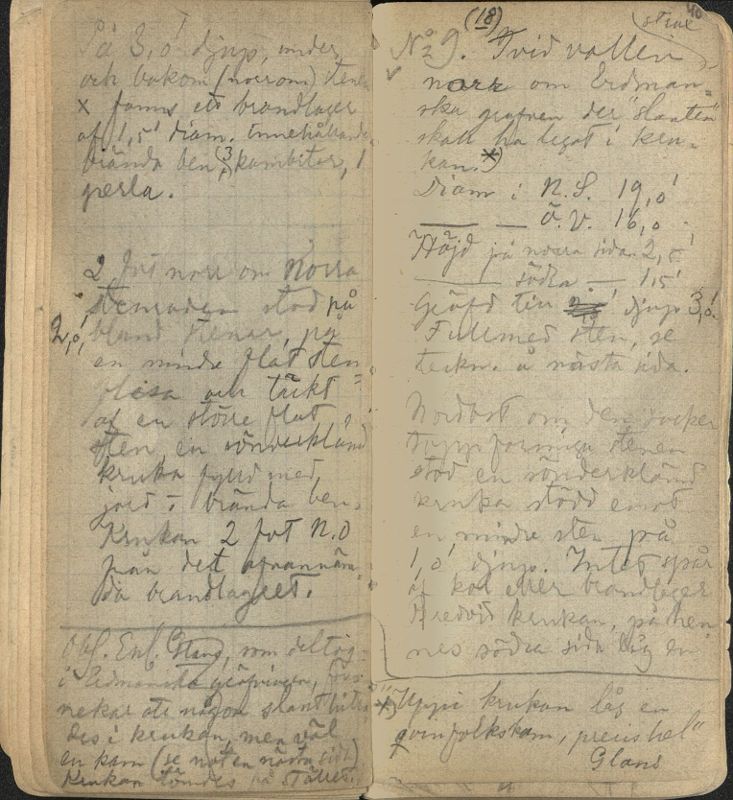 På 3,0' djup, under
och bakom (norrom) stenen
x fanns ett brandlager
af 1,5' diam. innehållande
brända ben, 3 kambitar, 1
perla.
2 fot norr om norra
stenraden stod på
2,0'
bland stenar, på
en mindre flat sten
och täckt
af en större flat
sten, en sönderklämd
kruka fylld med
jord o brända ben.
Krukan 2 fot N.O
från det ofvannämn
da brandlagret.
Obs. Enl. Glans, som deltog
i Erdmanska gräfningen, för
nekar att någon slant hitta
des i krukan, men väl
en kam (se noten nästa sida)
Krukan tömdes på stället.
40
(18)
No 9. Tvid vallen
norr om Erdman-
ska grafven der "slanten"
skall ha legat i kru-
kan. x)
Diam i N.S. 19,0'
— — Ö.V. 16,0
Höjd på norra sidan 2,5'
— södra — 1,5'
Gräfd till djup 3,0'
Full med sten, se
teckn. å nästa sida.
Nordost om den
toppformiga stenen
stod en sönderklämd
kruka stödd emot
en mindre sten på
1,0' djup. Intet spår
af kol eller brandlager
Bredvid krukan, på hen
nes södra sida låg en
x) "Uppi krukan låg en
qvinfolkskam, precis hel"
Glans